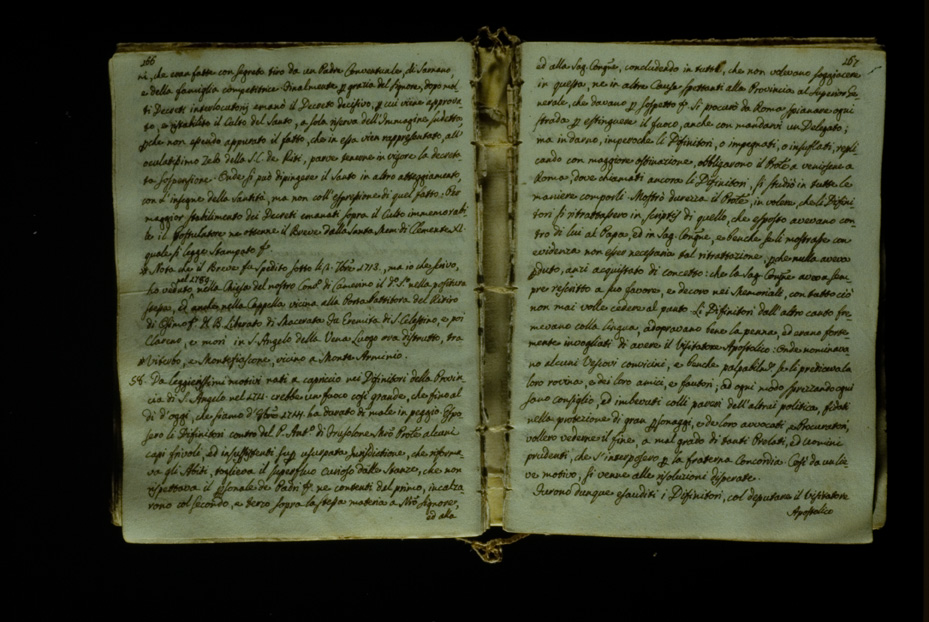 166
ni, che eran fatte con segreto tiro da un Padre Conventuale, di Sarnano,
e della famiglia competitrice. Finalmente, p grazia del Signore, dopo mol_
ti Decreti interlocutorj emanò il Decreto decisivo, p cui viene approva
to, e stabilito il Culto del Santo, a sola riserva dell'Immagine sudetta,
pche non essendo appurato il fatto, che in essa vien rappresentato, all'
oculatissimo Zelo della S. C. de Riti, parve tenerne in vigore la decreta
ta sospensione. Onde si può dipingere il Santo in altro atteggiamento,
con l'insegne della Santità, ma non coll'espressione di quel fatto. Per
maggior stabilimento dei Decreti emanati sopra il Culto immemorabi_
le il Postulatore ne ottenne il Breve dalla Santa Mem: di Clemente XI.
quale si legge Stampato
Nota che il Breve fu Spedito sotto li , ma io che scrivo,
nel 1789
ha veduto, nella Chiesa del nostro Con.to di Camerino il nella
stessa, ed anche nella Cappella vicina alla Porta battitora del Ritiro
di B. Liberato di Macerata da Eremita di S. Celestino, e poi
Clareno, e morì in S. Angelo della Vena: Luogo ora distrutto, tra
Viterbo, e Montefiascone, vicino a Monte Arminio.
58. Da leggierissimi motivi nati a capriccio nei Difinitori della Provin_
cia di S. Angelo nel crebbe un fuoco così grande, che fino al
dì d'oggi, che siamo d' 1744. ha durato di male in peggio. Espo_
sero li Difinitori contro del P. Ant.o di Frusolone Nrō Prōle alcuni
capi frivoli, ed insussistenti sup usurpata Jurisdictione, che riforma_
va gli Abiti, toglieva il superfluo curioso dalle Stanze, che non
rispettava il psonale de Padri ne contenti del primo, incalza_
rono col secondo, e terzo sopra la stessa materia a Nrō Signore,
ed alla
167
ed alla Sag. Congne, concludendo in tutti, che non volevano soggiacere
in questa, ne in altre Cause spettanti alla Provincia al Superior Ge_
nerale, che davano p sospetto Si procurò da Roma spianare ogni
strada p estinguere il fuoco, anche con mandarvi un Delegato;
ma indarno, imperoche li Difinitori, o impegnati, o insuflati, repli_
cando con maggiore ostinazione, obbligarono il Prōle a venirsene a
Roma, dove chiamati ancora li Difinitori, si studiò in tutte le
maniere comporli. Mostrò durezza il Prōle, in volere, che li Difini
tori si ritrattassero in scriptis di quello, che esposto avevano con
tro di lui al Papa, ed in Sag. Congne, e benche se li mostrasse con
evidenza non esser necessario tal ritrattazione, pche nulla aveva
pduto, anzi acquistato di concetto: che la Sag. Congne aveva sem_
pre rescritto a suo favore, e decoro nei Memoriali, con tutto ciò
non mai volle cedere al punto. Li Difinitori dall'altro canto fre
mevano colla lingua, adopravano bene la penna, ed erano forte_
mente invogliati di avere il Visitatore Apostolico: onde nominava_
no alcuni Vescovi convicini, e benche palpabilm.e se li prediceva la
loro rovina, e dei loro amici, e fautori; ad ogni modo sprezzando ogni
sano consiglio, ed imbevuti colli pareri dell'altrui politica, fidati
nella protezione di gran psonaggi, e de loro avvocati, e Procuratori,
vollero vederne il fine, a mal grado di tanti Prelati, ed Uomini
prudenti, che s'interposero p la fraterna Concordia. Così da un lie_
ve motivo, si venne alle risoluzioni disperate.
Furono dunque esauditi i Difinitori, col deputare il Visitatore
Apostolico